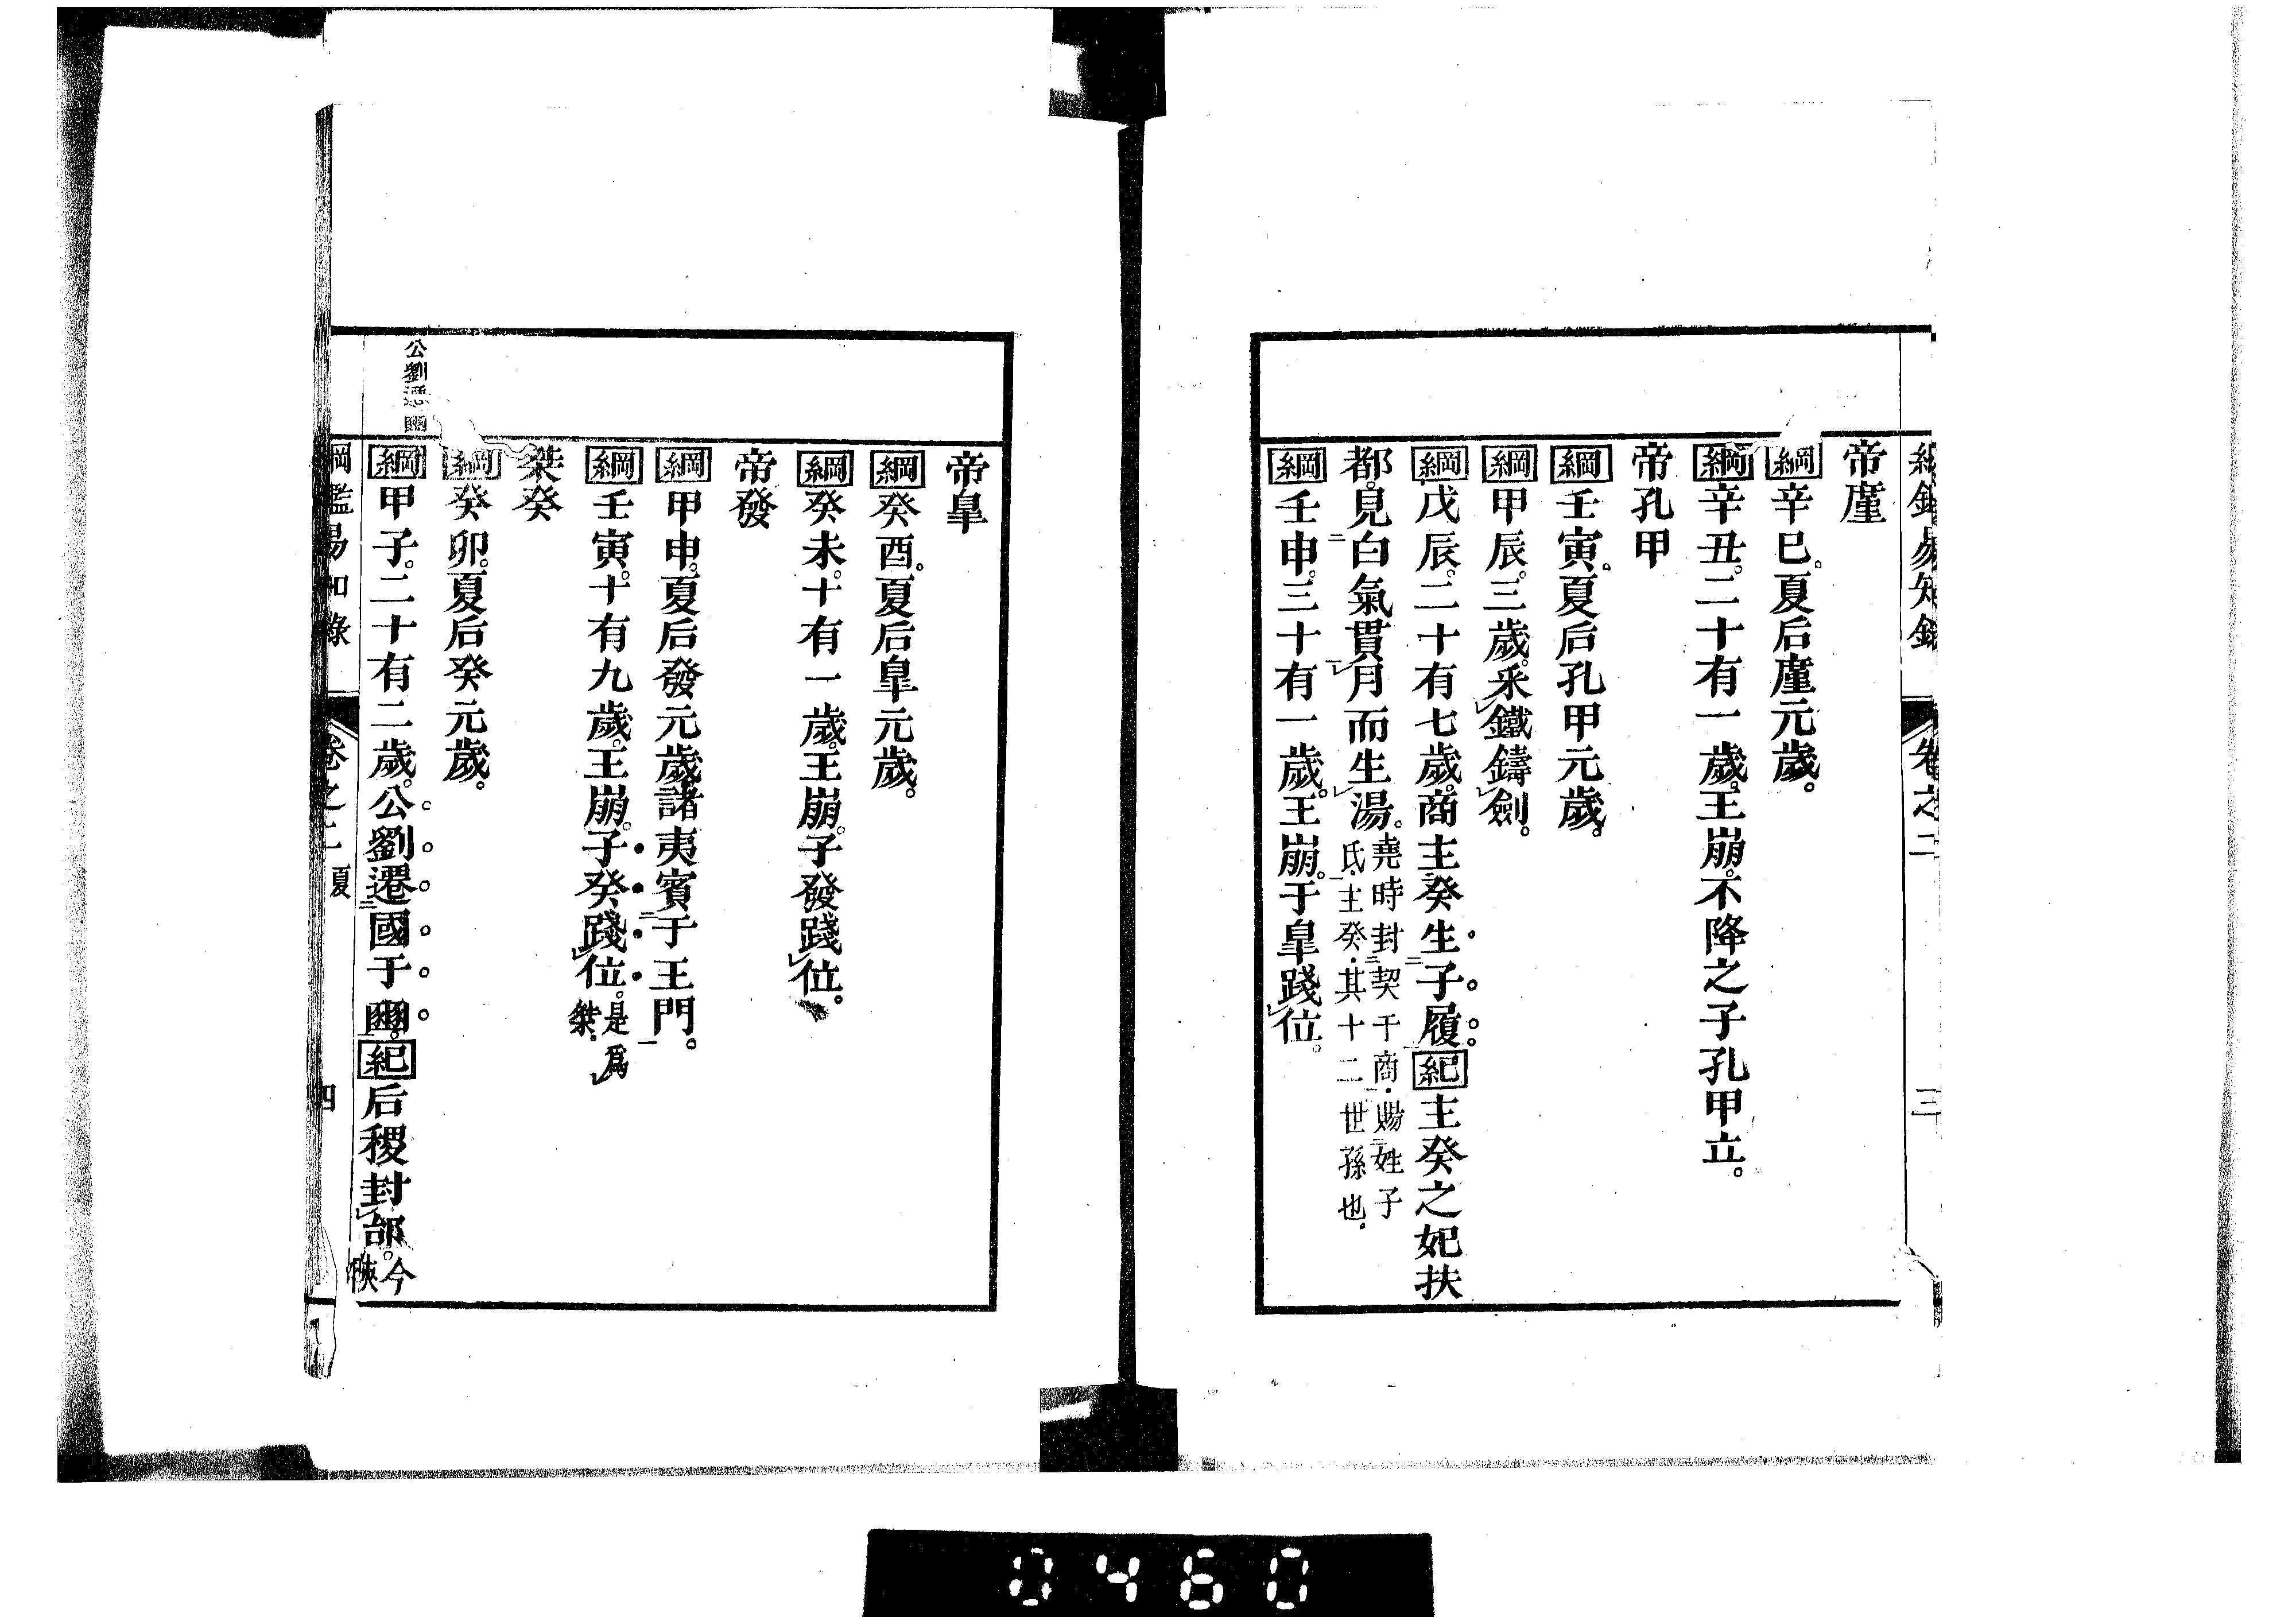 綱鑑易知錄 卷之二 三
帝廑
綱辛巳。夏后廑元歲。
綱辛丑。二十有一歲。王崩。不降之子孔甲立。
帝孔甲
綱壬寅。夏后孔甲元歲。
綱甲辰。三歲。采鐵鑄劍。
綱戊辰。二十有七歲。商主癸生子履。紀主癸之妃扶
都。見白氣貫月而生湯。堯時封契于商。賜姓子
氏。主癸。其十二世孫也。
綱壬申。三十有一歲。王崩。子皐踐位。
帝皐
綱癸酉。夏后皐元歲。
綱癸未。十有一歲。王崩。子發踐位。
帝發
綱甲申。夏后發元歲。諸夷賓于王門。
綱壬寅。十有九歲。王崩。子癸踐位。是爲
桀。
桀癸
綱癸卯。夏后癸元歲。
公劉遷豳
綱甲子。二十有二歲。公劉遷國于豳。紀后稷封邰。今
陝
綱鑑易知錄 卷之二 夏 四
0460